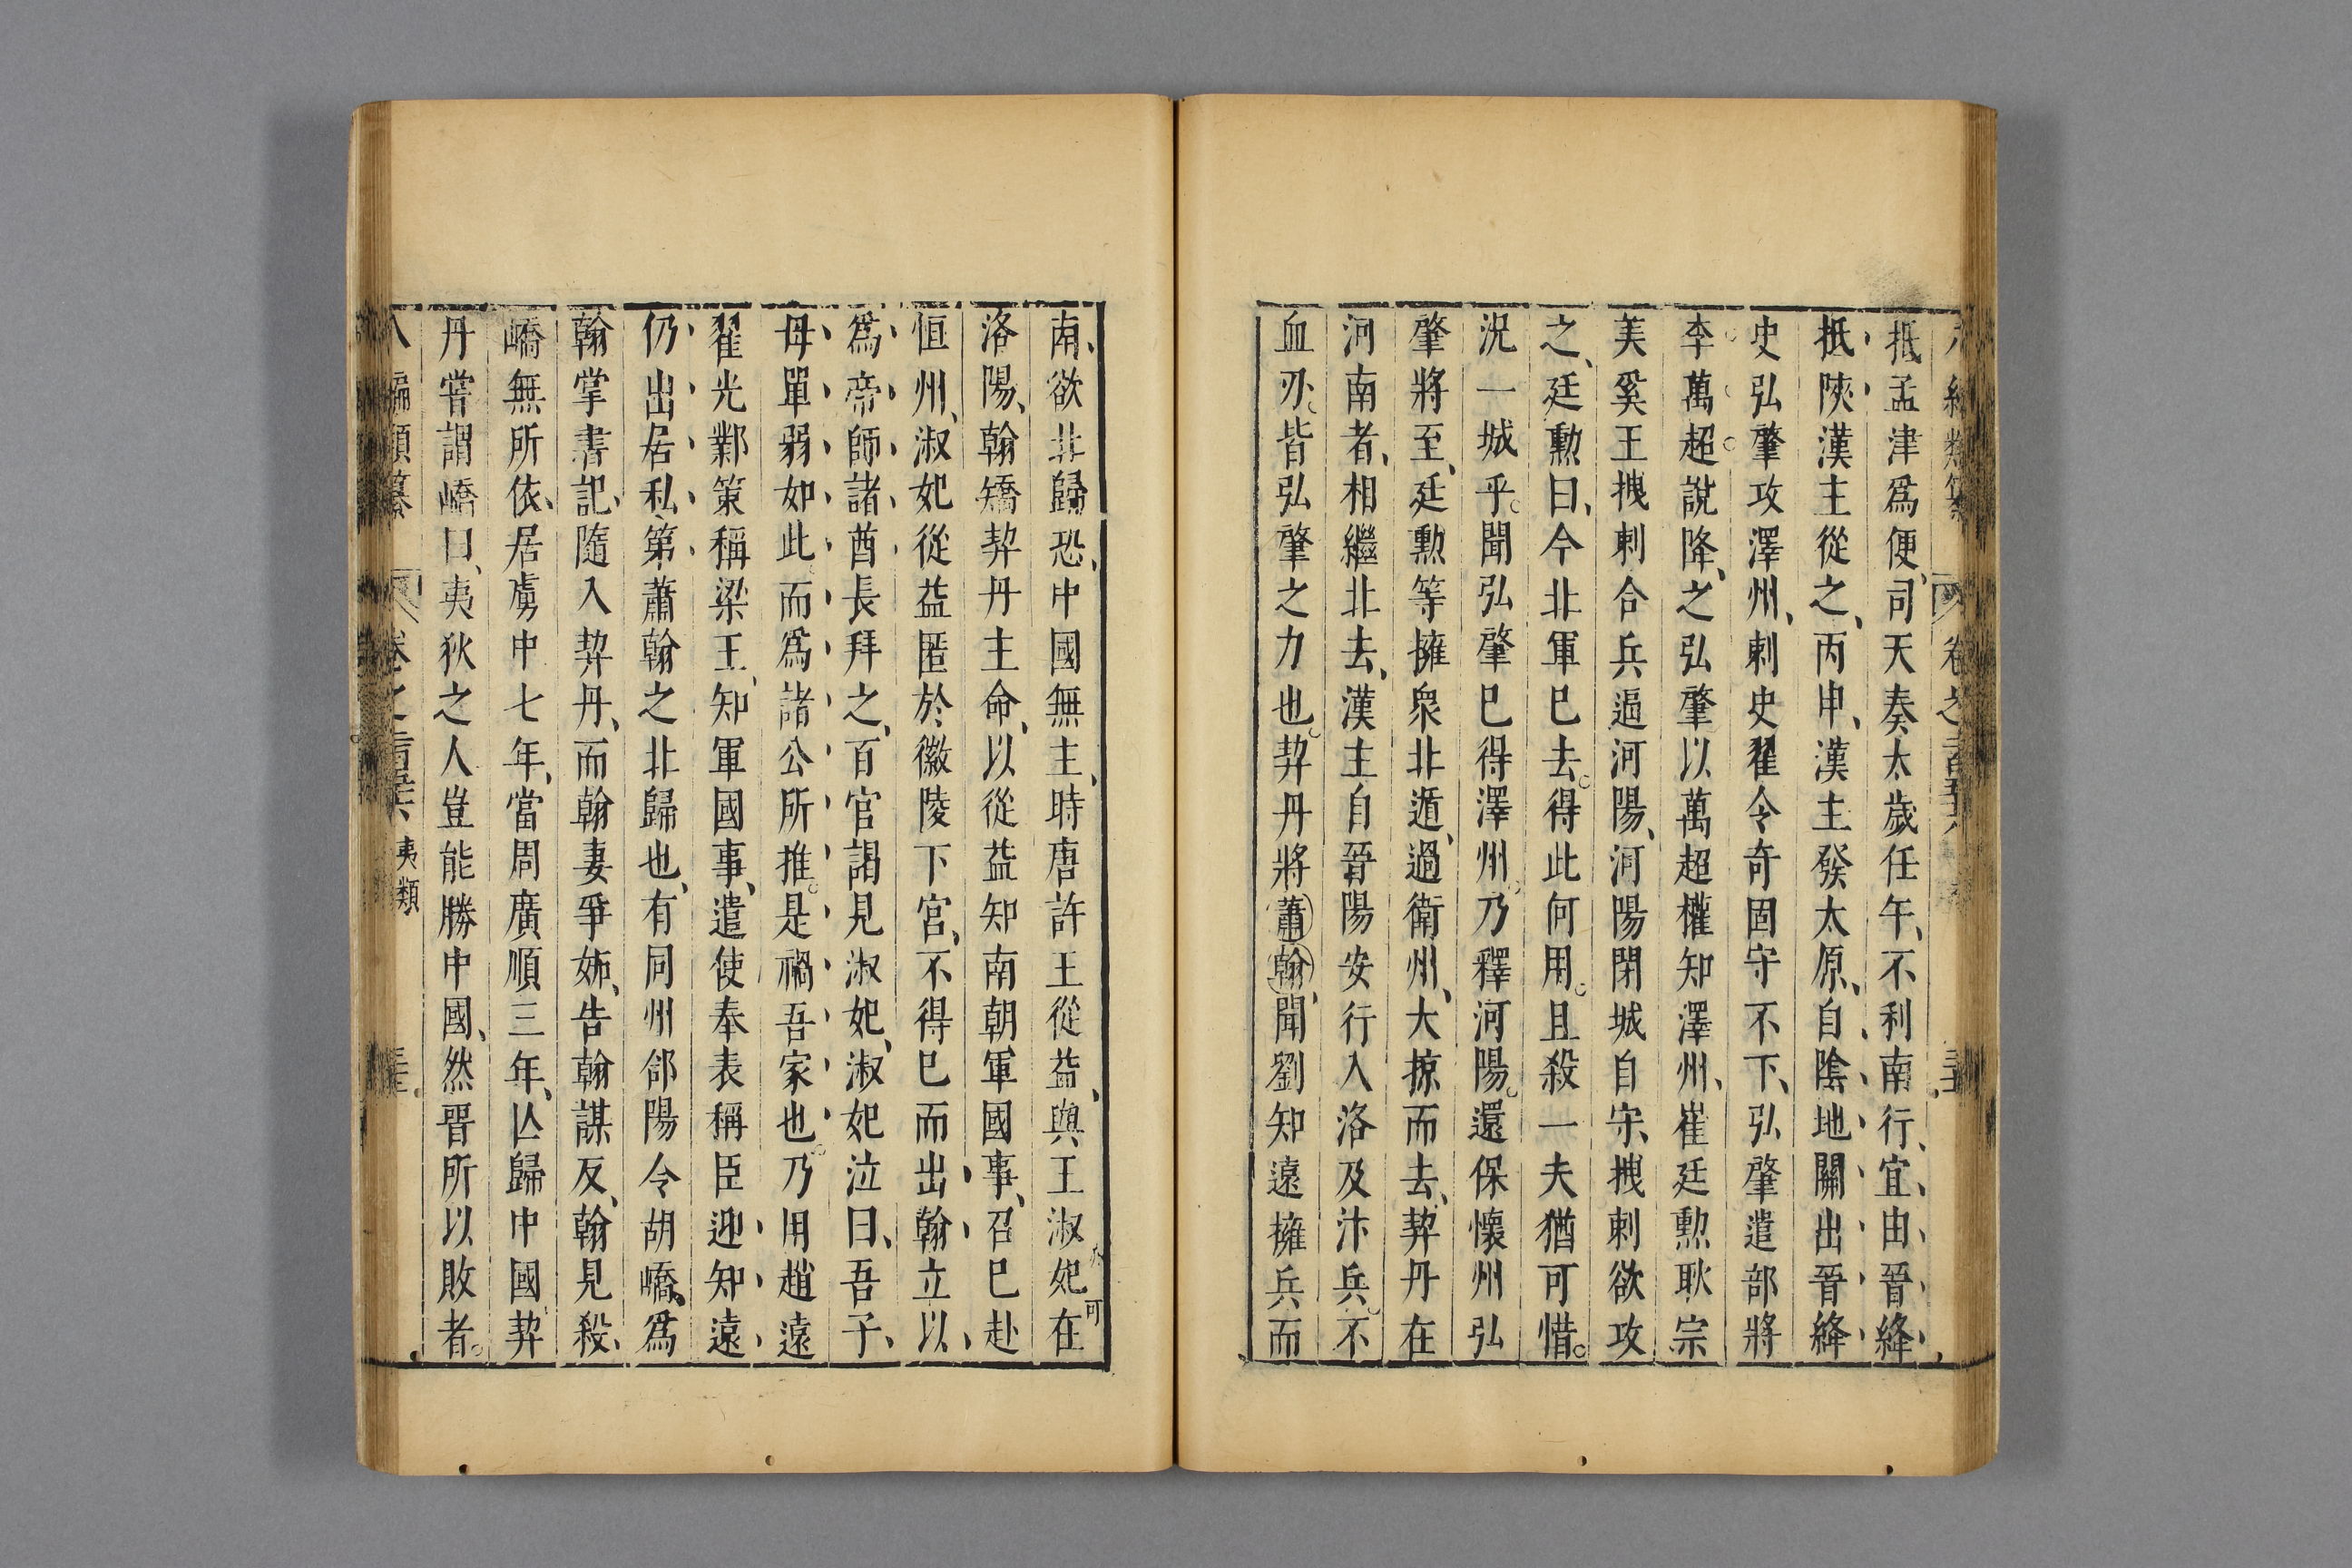 抵孟津爲便、司天奏太歲任午、不利南行、宜由晉絳
抵陝漢主從之、丙申、漢主發太原、自陰地關出晉絳
史弘肇攻澤州、刺史翟令奇固守不下、弘肇遣部將
李萬超說降之、弘肇以萬超權知澤州、崔廷勲耿宗
美奚王拽剌合兵逼河陽、河陽閉城自守、拽剌欲攻
之、廷勲曰、今北軍已去。得此何用。且殺一夫猶可惜。
況一城乎。聞弘肇已得澤州。乃釋河陽。還保懷州弘
肇將至、廷勲等擁衆北遁、過衛州、大掠而去、契丹在
河南者、相繼北去、漢主自晉陽安行入洛及汴兵。不
血刃。皆弘肇之力也。契丹將蕭翰聞劉知遠擁兵而
南、欲北歸恐、中國無主、時唐許王從益、與王淑妃在
洛陽、翰矯契丹主命、以從益知南朝軍國事、召已赴
恒州、淑妃從益匿於徽陵下宮、不得已而出翰立以
爲帝師諸酋長拜之、百官謁見淑妃、淑妃泣曰、吾子
母單弱如此而爲諸公所推。是禍吾家也。乃用趙遠
翟光鄴策稱梁王、知軍國事、遣使奉表稱臣迎知遠
仍出居私第、蕭翰之北歸也、有同州郃陽令胡嶠爲
翰掌書記、隨入契丹、而翰妻爭妬、告翰謀反、翰見殺、
嶠無所依、居虜中七年、當周廣順三年、亾歸中國契
丹嘗謂嶠曰、夷狄之人豈能勝中國、然晋所以敗者。
八編類纂 夷類